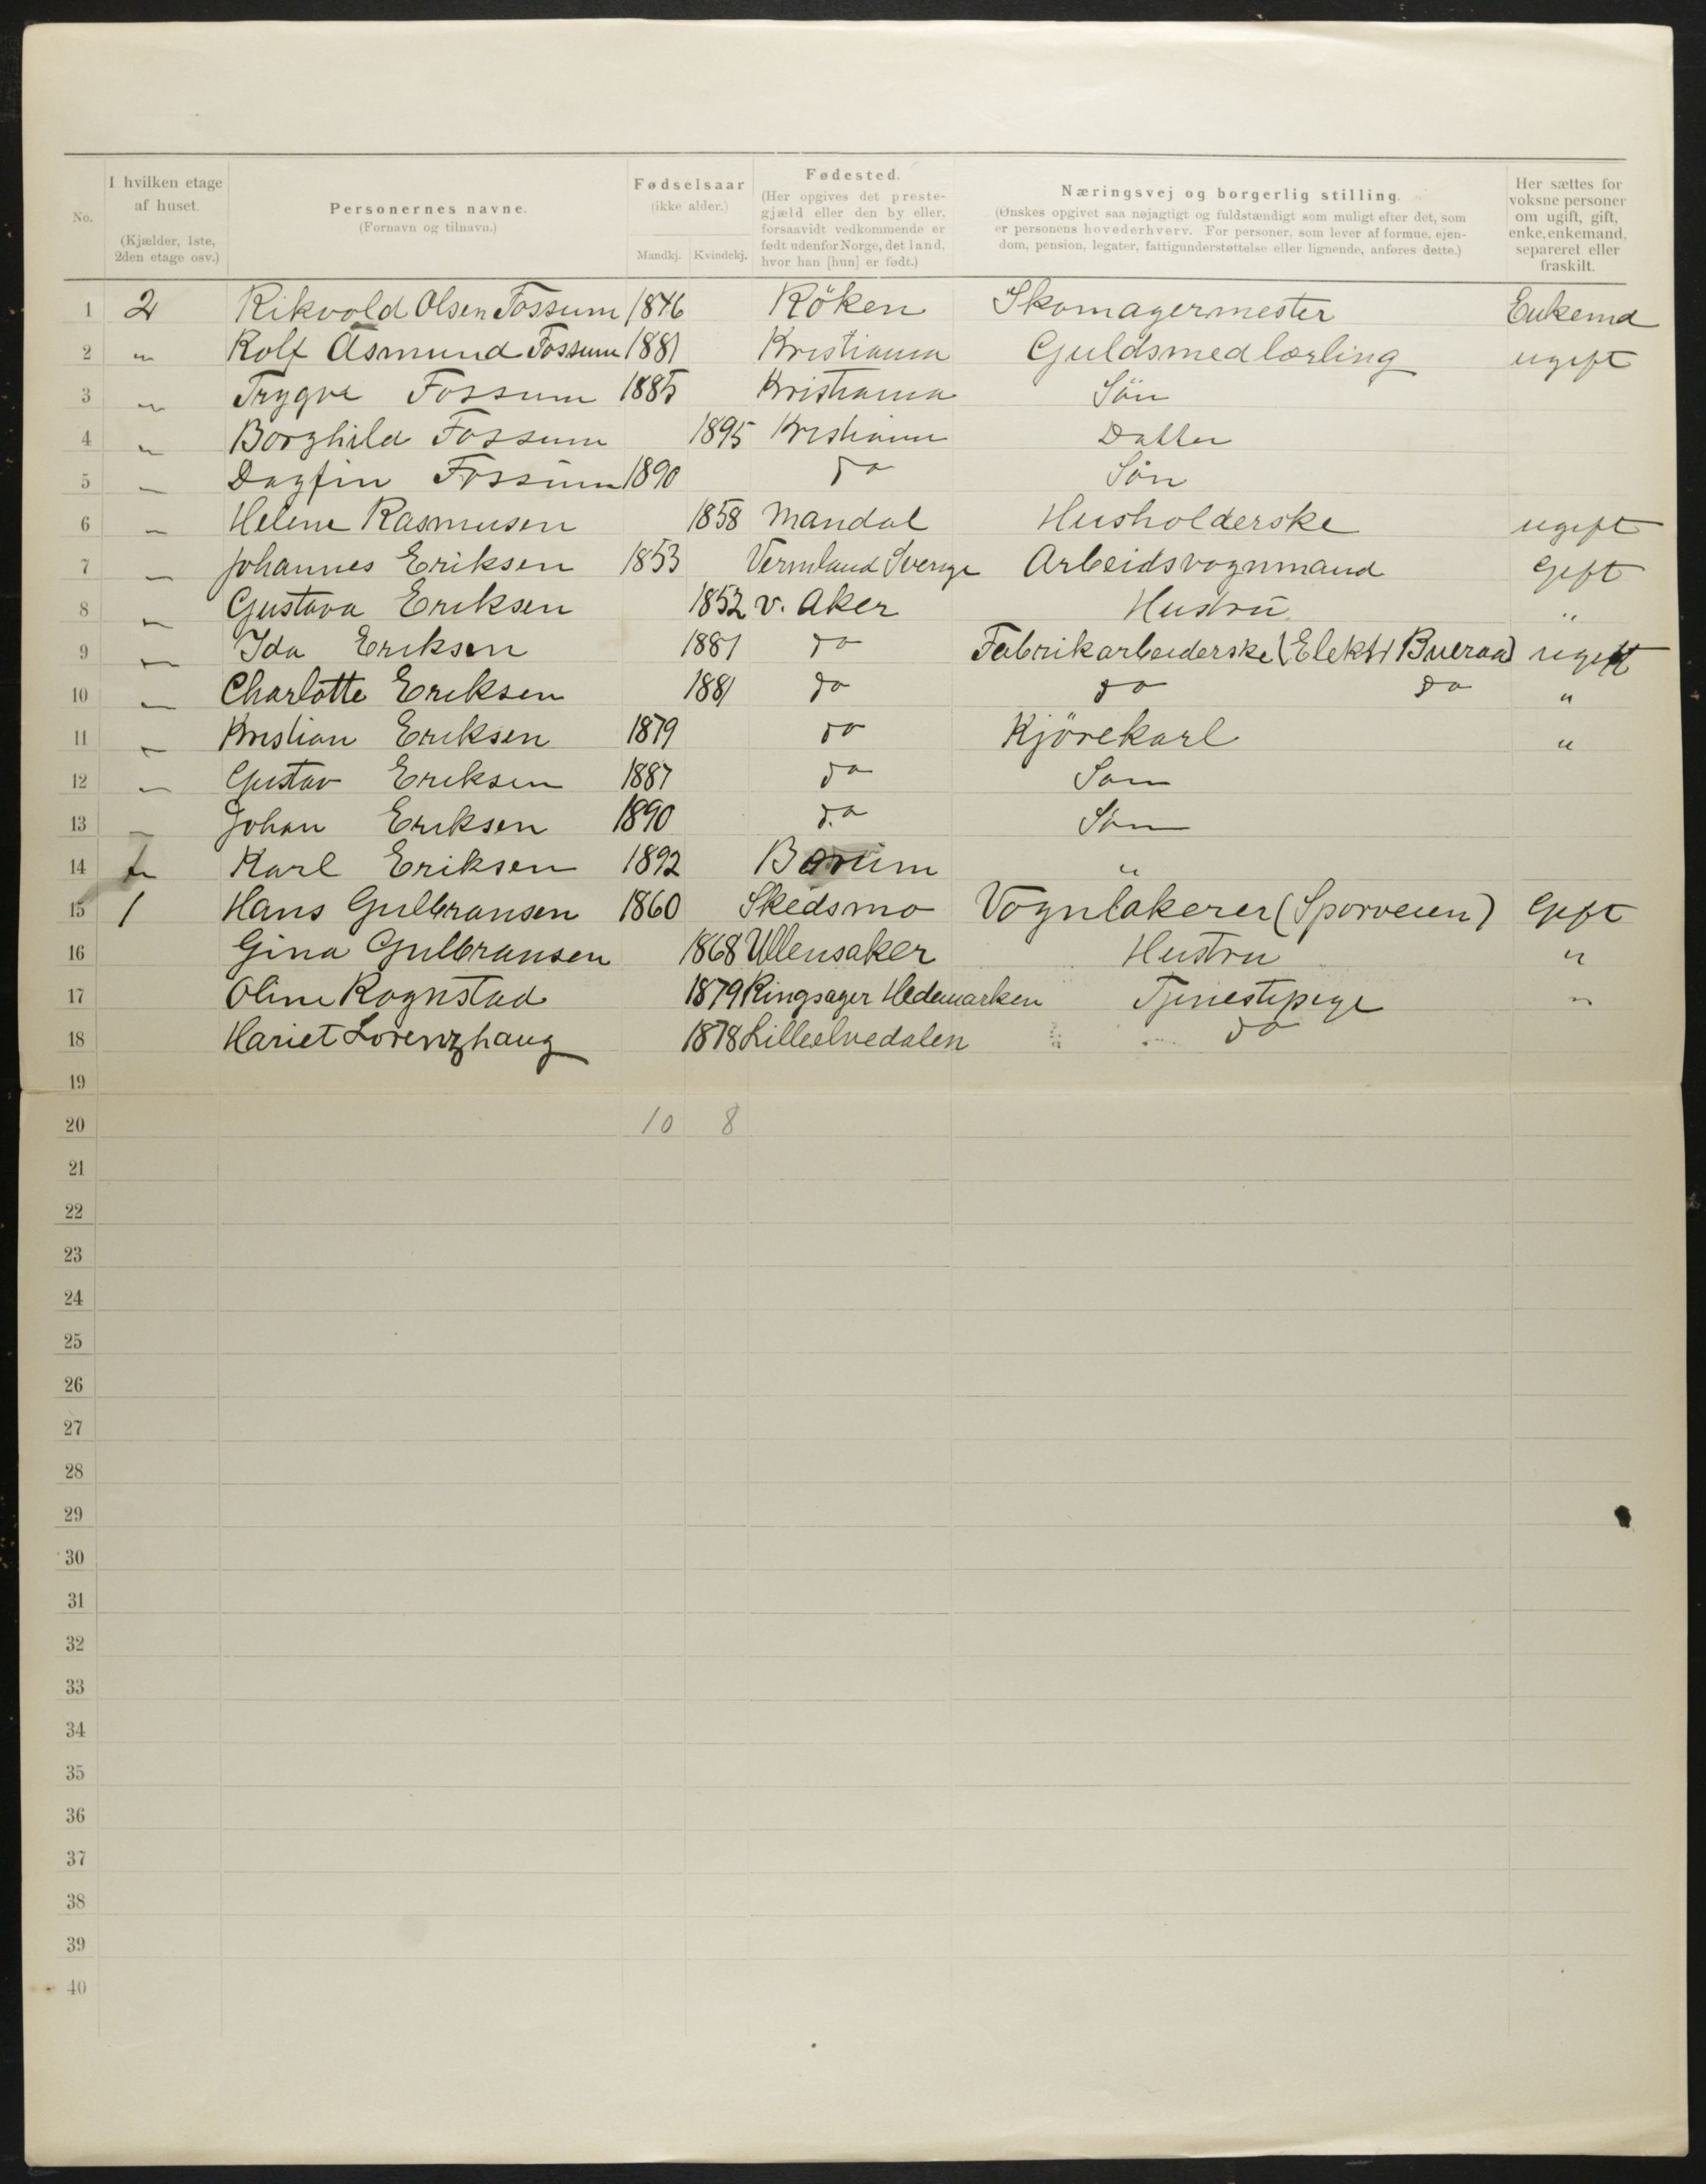 No. I hvilken etage af huset. (Kjælder, 1ste, 2den etage osv.) Personernes navne. (Fornavn og tilnavn.) Fødselsaar (ikke alder.) Mandkj. Kvindekj. Fødested. (Her opgives det prestegjæld eller den by eller, forsaavidt vedkommende er født udenfor Norge, det land, hvor han [hun] er født.) Næringsvej og borgerlig stilling. (Ønskes opgivet saa nøjagtigt og fuldstændigt som muligt efter det, som er personens hovederhverv. For personer, som lever af formue, ejendom, pension, legater, fattigunderstøttelse eller lignende, anføres dette.) Her sættes for voksne personer om ugift, gift, enke, enkemand, separeret eller fraskilt.
1 2 Rikvold Olsen Fossum 1846 Röken Skomagermester Enkemd
2 " Rolf Asmund Fossum 1881 Kristiania Guldsmedlærling ugift
3 " Trygve Fossum 1885 Kristiania Sön
4 " Borghild Fossum 1895 Kristiania Datter
5 " Dagfin Fossum 1890 do Sön
6 " Helene Rasmusen 1858 Mandal Husholderske ugift
7 " Johannes Eriksen 1853 Vermland Sverige Arbeidsvognmand Gift
8 " Gustava Eriksen 1852 v. Aker Hustru "
9 " Ida Eriksen 1881 do Fabrikarbeiderske (Elektr Bureau) ugift
10 " Charlotte Eriksen 1881 do do do "
11 " Kristian Eriksen 1879 do Kjörekarl "
12 " Gustav Eriksen 1887 do Søn
13 " Johan Eriksen 1890 do Søn
14 " Karl Eriksen 1892 Bærum "
15 1 Hans Gulbransen 1860 Skedsmo Vognlakerer (Sporveien) Gift
16 Gina Gulbransen 1868 Ullensaker Hustru "
17 Oline Rognstad 1879 Ringsager Hedemarken Tjenestepige "
18 Hariet Lorenzhaug 1878 Lilleelvedalen do
19
20 10 8
21
22
23
24
25
26
27
28
29
30
31
32
33
34
35
36
37
38
39
40